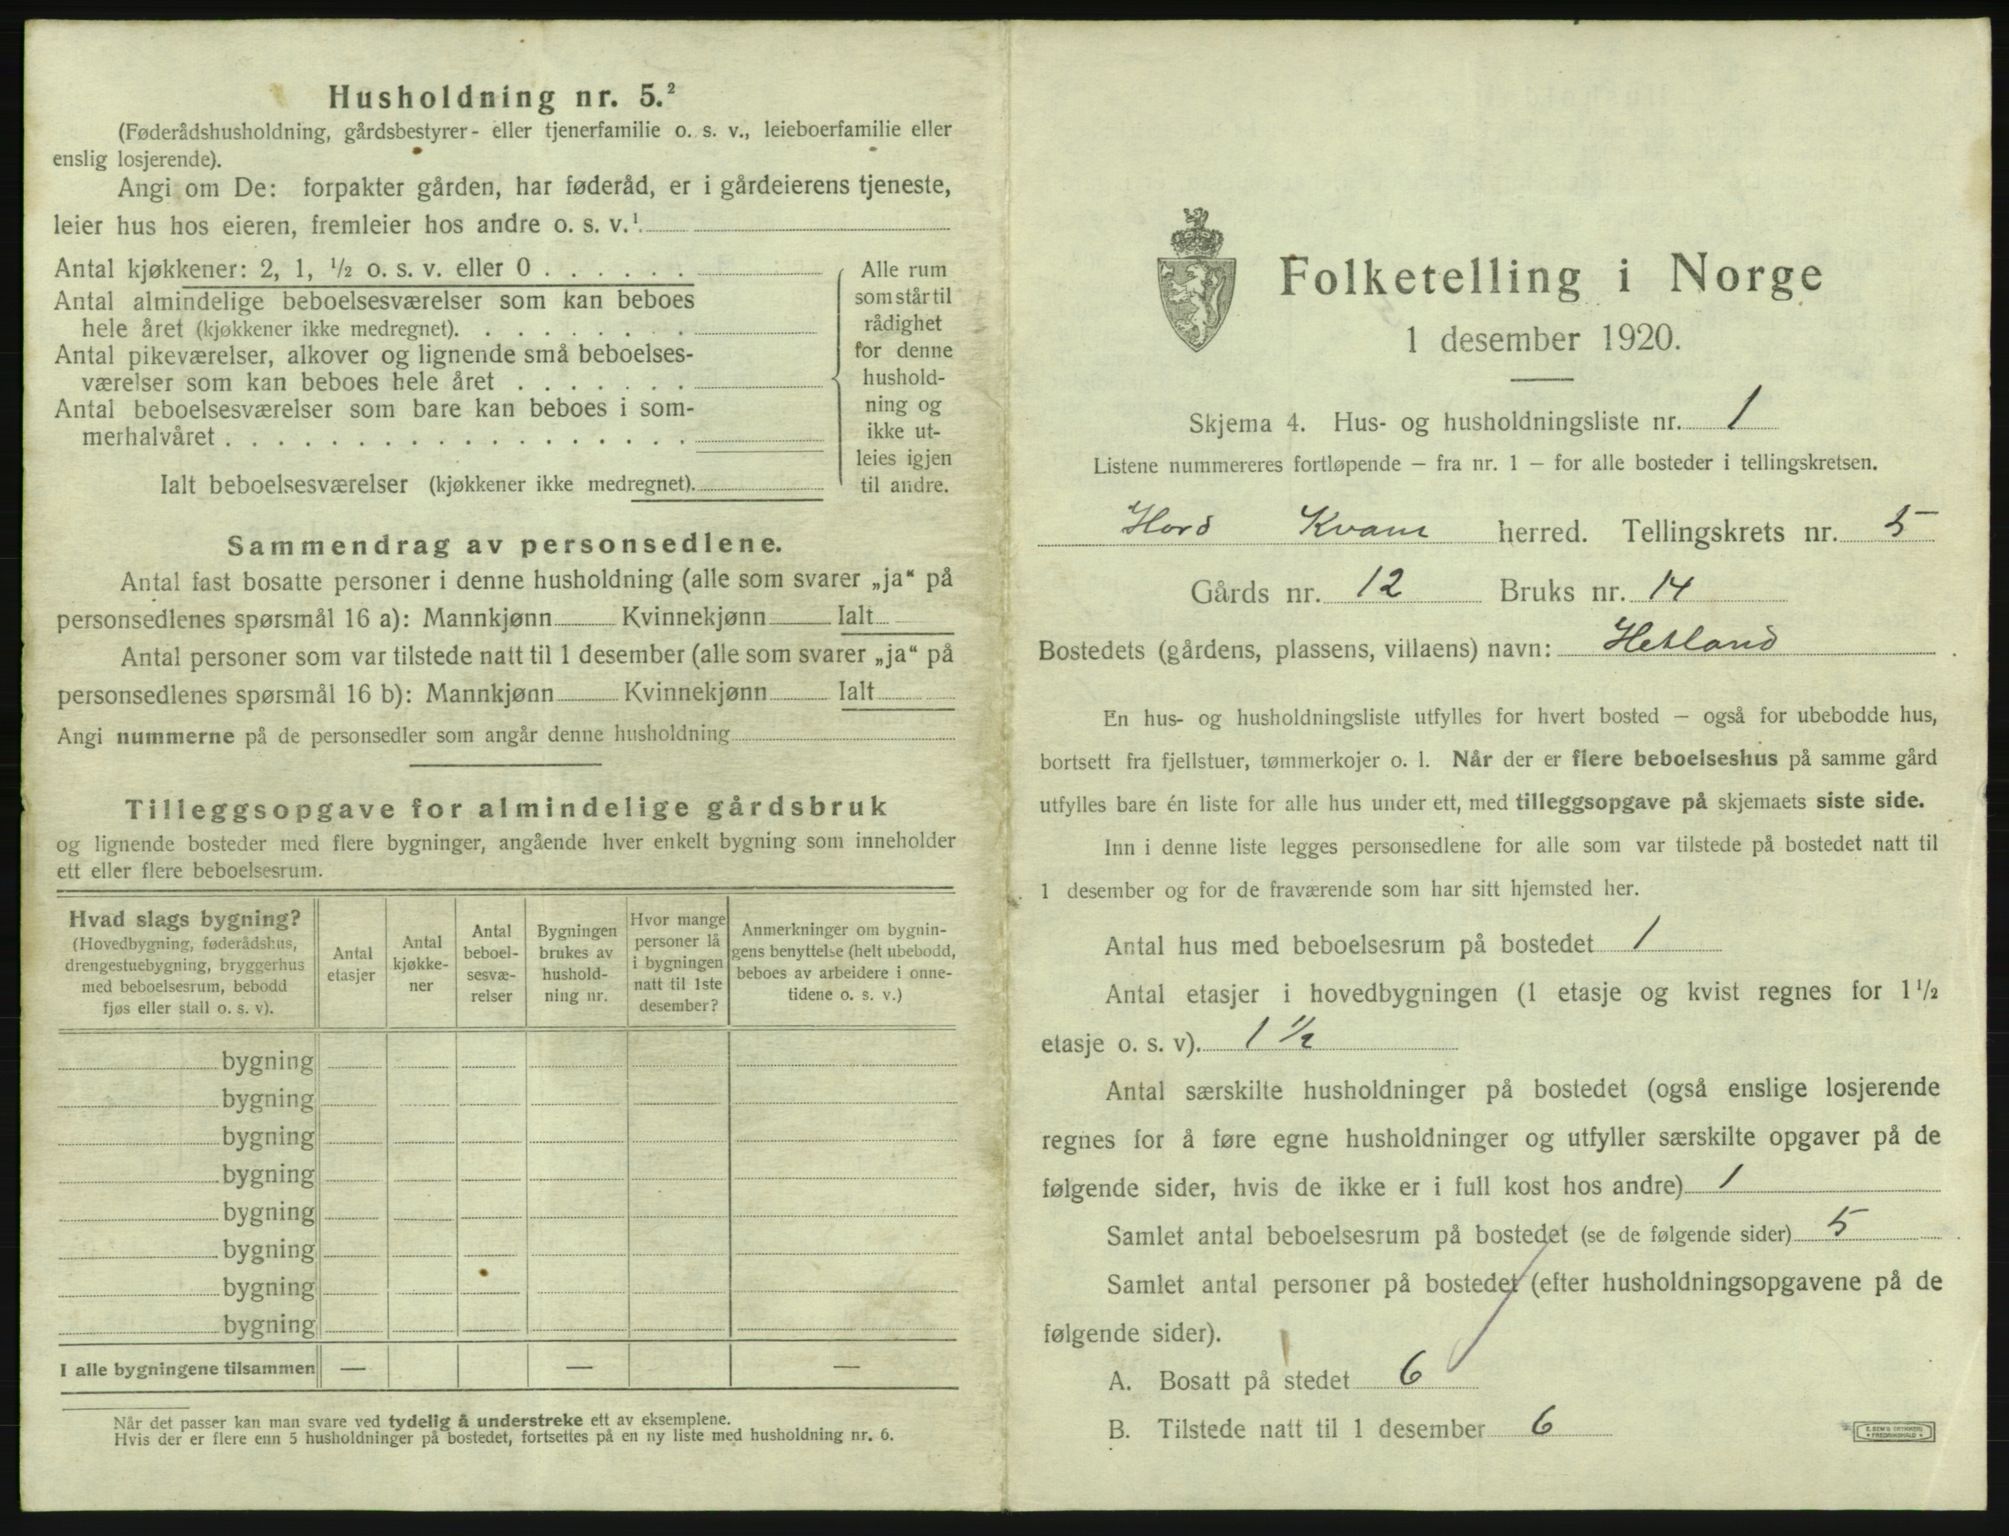 Husholdning nr. 5.²
(Føderådshusholdning, gårdsbestyrer- eller tjenerfamilie o. s. v., leieboerfamilie eller
enslig losjerende).
Angi om De: forpakter gården, har føderåd, er i gårdeierens tjeneste,
leier hus hos eieren, fremleier hos andre o. s. v.¹
Antal kjøkkener: 2, 1, ½ o. s. v. eller 0 . . . . . .
Antal almindelige beboelsesværelser som kan beboes
hele året (kjøkkener ikke medregnet). . . . . . . . .
Antal pikeværelser, alkover og lignende små beboelses-
værelser som kan beboes hele året . . . . . . .
Antal beboelsesværelser som bare kan beboes i som-
merhalvåret . . . . . . . . . . . . . . . . . .
Ialt beboelsesværelser (kjøkkener ikke medregnet).
Alle rum
som står til
rådighet
for denne
hushold-
ning og
ikke ut-
leies igjen
til andre.
Sammendrag av personsedlene.
Antal fast bosatte personer i denne husholdning (alle som svarer „ja“ på
personsedlenes spørsmål 16 a): Mannkjønn Kvinnekjønn Ialt
Antal personer som var tilstede natt til 1 desember (alle som svarer „ja“ på
personsedlenes spørsmål 16 b): Mannkjønn Kvinnekjønn Ialt
Angi nummerne på de personsedler som angår denne husholdning
Tilleggsopgave for almindelige gårdsbruk
og lignende bosteder med flere bygninger, angående hver enkelt bygning som inneholder
ett eller flere beboelsesrum.
Hvad slags bygning?
(Hovedbygning, føderådshus,
drengestuebygning, bryggerhus
med beboelsesrum, bebodd
fjøs eller stall o. s. v).
Antal
etasjer
Antal
kjøkke-
ner
Antal
beboel-
sesvæ-
relser
Bygningen
brukes av
hushold-
ning nr.
Hvor mange
personer lå
i bygningen
natt til 1ste
desember?
Anmerkninger om bygnin-
gens benyttelse (helt ubebodd,
beboes av arbeidere i onne-
tidene o. s. v.)
bygning
bygning
bygning
bygning
bygning
bygning
bygning
bygning
I alle bygningene tilsammen — — —
Når det passer kan man svare ved tydelig å understreke ett av eksemplene.
Hvis der er flere enn 5 husholdninger på bostedet, fortsettes på en ny liste med husholdning nr. 6.
Folketelling i Norge
1 desember 1920.
Skjema 4. Hus- og husholdningsliste nr. 1
Listene nummereres fortløpende – fra nr. 1 – for alle bosteder i tellingskretsen.
Hord Kvam herred. Tellingskrets nr. 5
Gårds nr. 12 Bruks nr. 14
Bostedets (gårdens, plassens, villaens) navn: Hetland
En hus- og husholdningsliste utfylles for hvert bosted – også for ubebodde hus,
bortsett fra fjellstuer, tømmerkojer o. l. Når der er flere beboelseshus på samme gård
utfylles bare én liste for alle hus under ett, med tilleggsopgave på skjemaets siste side.
Inn i denne liste legges personsedlene for alle som var tilstede på bostedet natt til
1 desember og for de fraværende som har sitt hjemsted her.
Antal hus med beboelsesrum på bostedet 1
Antal etasjer i hovedbygningen (1 etasje og kvist regnes for 1½
etasje o. s. v). 1½
Antal særskilte husholdninger på bostedet (også enslige losjerende
regnes for å føre egne husholdninger og utfyller særskilte opgaver på de
følgende sider, hvis de ikke er i full kost hos andre) 1
Samlet antal beboelsesrum på bostedet (se de følgende sider) 5
Samlet antal personer på bostedet (efter husholdningsopgavene på de
følgende sider).
A. Bosatt på stedet 6
B. Tilstede natt til 1 desember 6